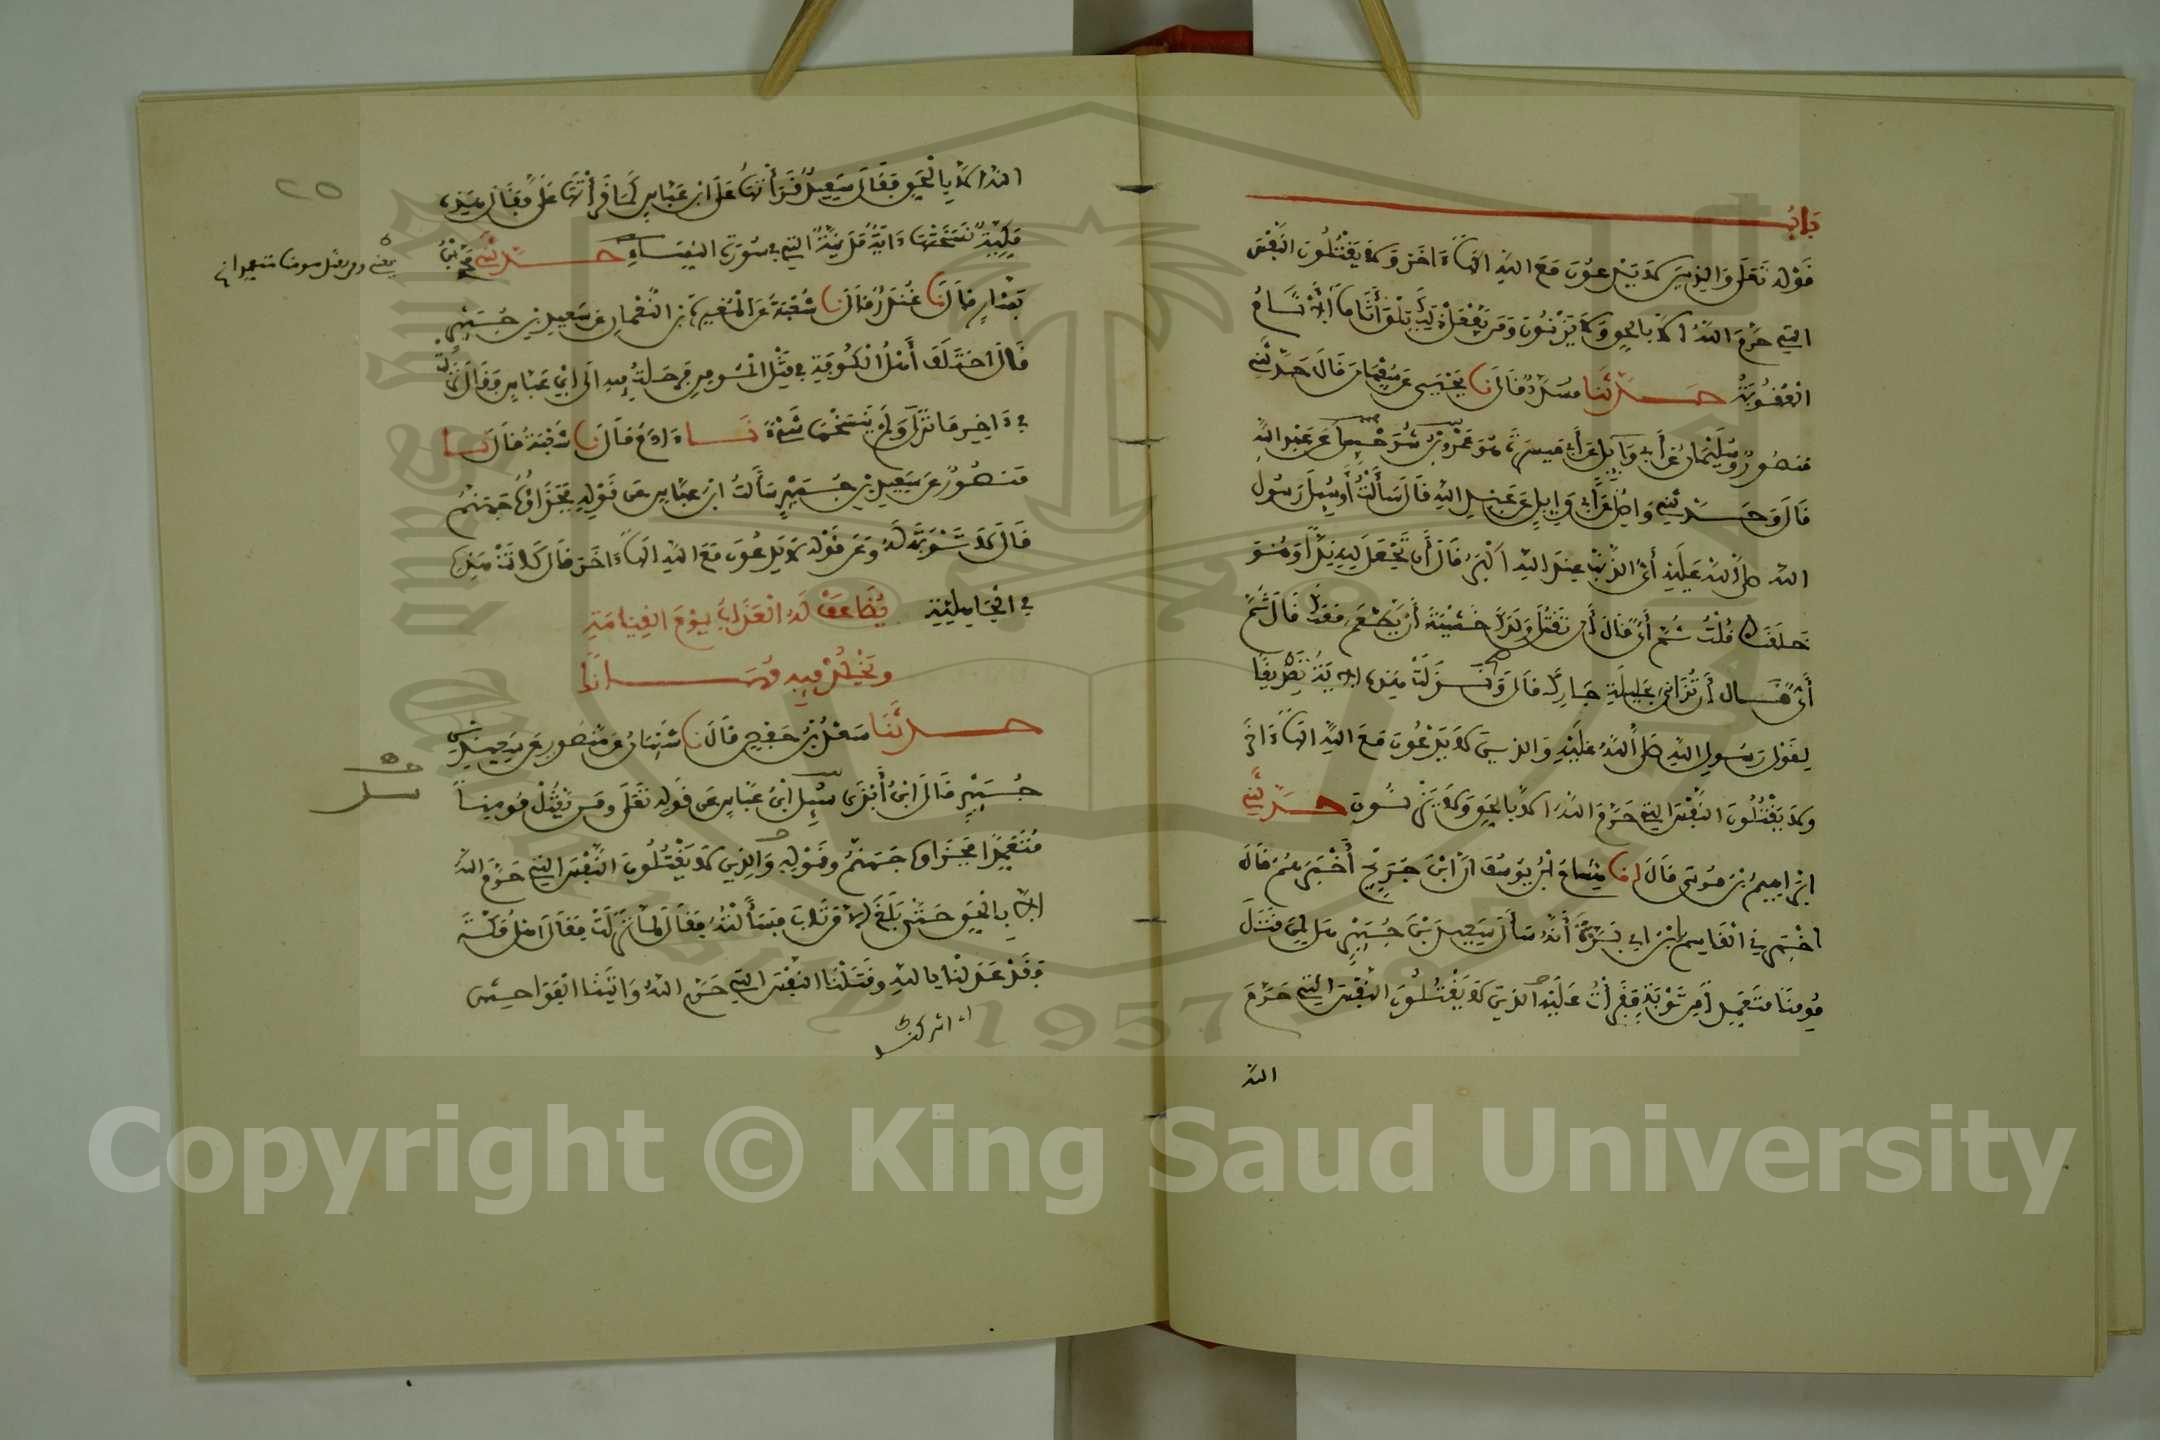 باب
قوله تعلى والذين لا يدعون مع الله الها ءاخر ولا يقتلون النفس
التي حرم الله الا بالحق ولا يزنون ومن يفعل ذلك يلق أثاما أثاما
العقوبة حدثنا مسدد قال نا يحيى عن سفيان قال حدثني
منصور وسليمان عن أبي وايل عن أبي ميسرة هو عمرو بن شرحبيل عن عبد الله
قال وحدثني واصل عن أبي وايل عن عبد الله قال سألت أو سيل رسول
الله صلى الله عليه أي الذنب عند الله اكبر قال أن تجعل لله ندا وهو
خلقك قلت ثم أي قال أن تقتل ولدك خشية أن يطعم معك قال ثم
أي قال أن تزاني بحليلة جارك قال ونزلت هذه الاية تصديقا
لقول رسول الله صلى الله عليه والذين لا يدعون مع الله الها ءاخر
ولا يقتلون النفس التي حرم الله الا بالحق ولا يزنون حدثني
ابراهيم بن موسى قال انا هشام بن يوسف ان ابن جريج أخبرهم قال
اخبرني القاسم بن ابي بزة أنه سأل سعيد بن جبير هل لمن قتل
مومنا متعمدا من توبة فقرأت عليه الذين لا يقتلون النفس التي حرم
الله
الله الا بالحق فقال سعيد قرأتها على ابن عباس كما قرأتها علي فقال هذه
مكية نسختها ءاية مدنية التي في سورة النساء حدثني محمد بن
بشار قال نا غندر قال نا شعبة عن المغيرة بن النعمان عن سعيد بن جبير
قال اختلف أهل الكوفة في قتل المومن فرحلت فيه الى ابن عباس فقال نزلت
في ءاخر ما نزل ولم ينسخها شيء نا ءادم قال نا شعبة قال نا
منصور عن سعيد بن جبير سألت ابن عباس عن قوله فجزاؤه جهنم
قال لا توبة له وعن قوله لا يدعون مع الله الها ءاخر قال كانت هذه
في الجاهلية يضاعف له العذاب يوم القيامة
ويخلد فيه مهانا
حدثنا سعد بن حفص قال نا شيبان عن منصور عن سعيد بن
جبير قال ابن أبزى سيل ابن عباس عن قوله تعلى ومن يقتل مومنا
متعمدا فجزاؤه جهنم وقوله والذين لا يقتلون النفس التي حرم الله
الا بالحق حتى بلغ الا من تاب فسألته فقال لما نزلت فقال اهل مكة
فقد عدلنا بالله وقتلنا النفس التي حرم الله واتينا الفواحش